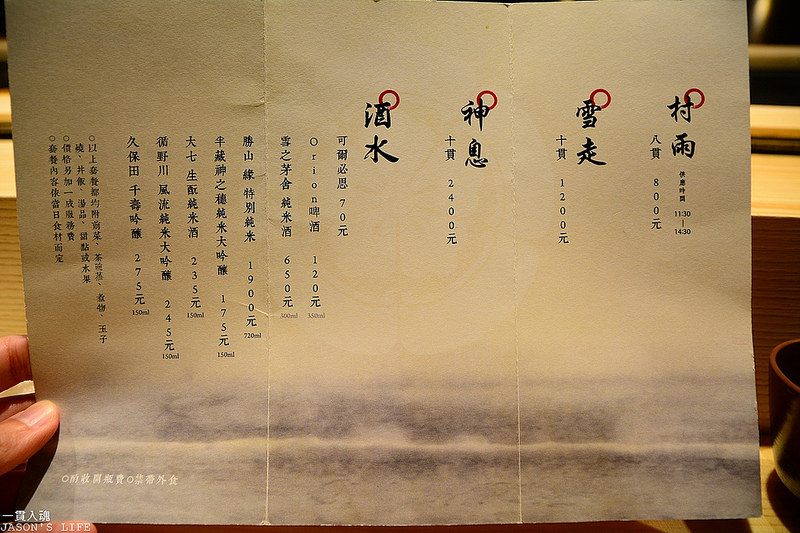 村雨
供應時間
11:30
|
14:30
八貫 800元
雪走
十貫 1200元
神息
十貫 2400元
酒水
可爾必思 70元
Orion啤酒 120元 350ml
雪之茅舍 純米酒 650元 300ml
勝山 緣 特別純米 1900元 720ml
半藏神之穗純米大吟釀 175元 150ml
大七 生酛純米酒 235元 150ml
循野川 風流純米大吟釀 245元 150ml
久保田 千壽吟釀 275元 150ml
○以上套餐都均附前菜、茶碗蒸、煮物、玉子
燒、丼飯、湯品、甜點或水果
○價格另加一成服務費
○套餐內容依當日食材而定
○酌收開瓶費○禁帶外食
一貫入魂
JASON'S LIFE